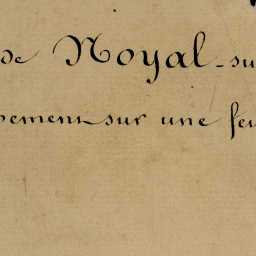 de Noyal-su
pement sur une feu